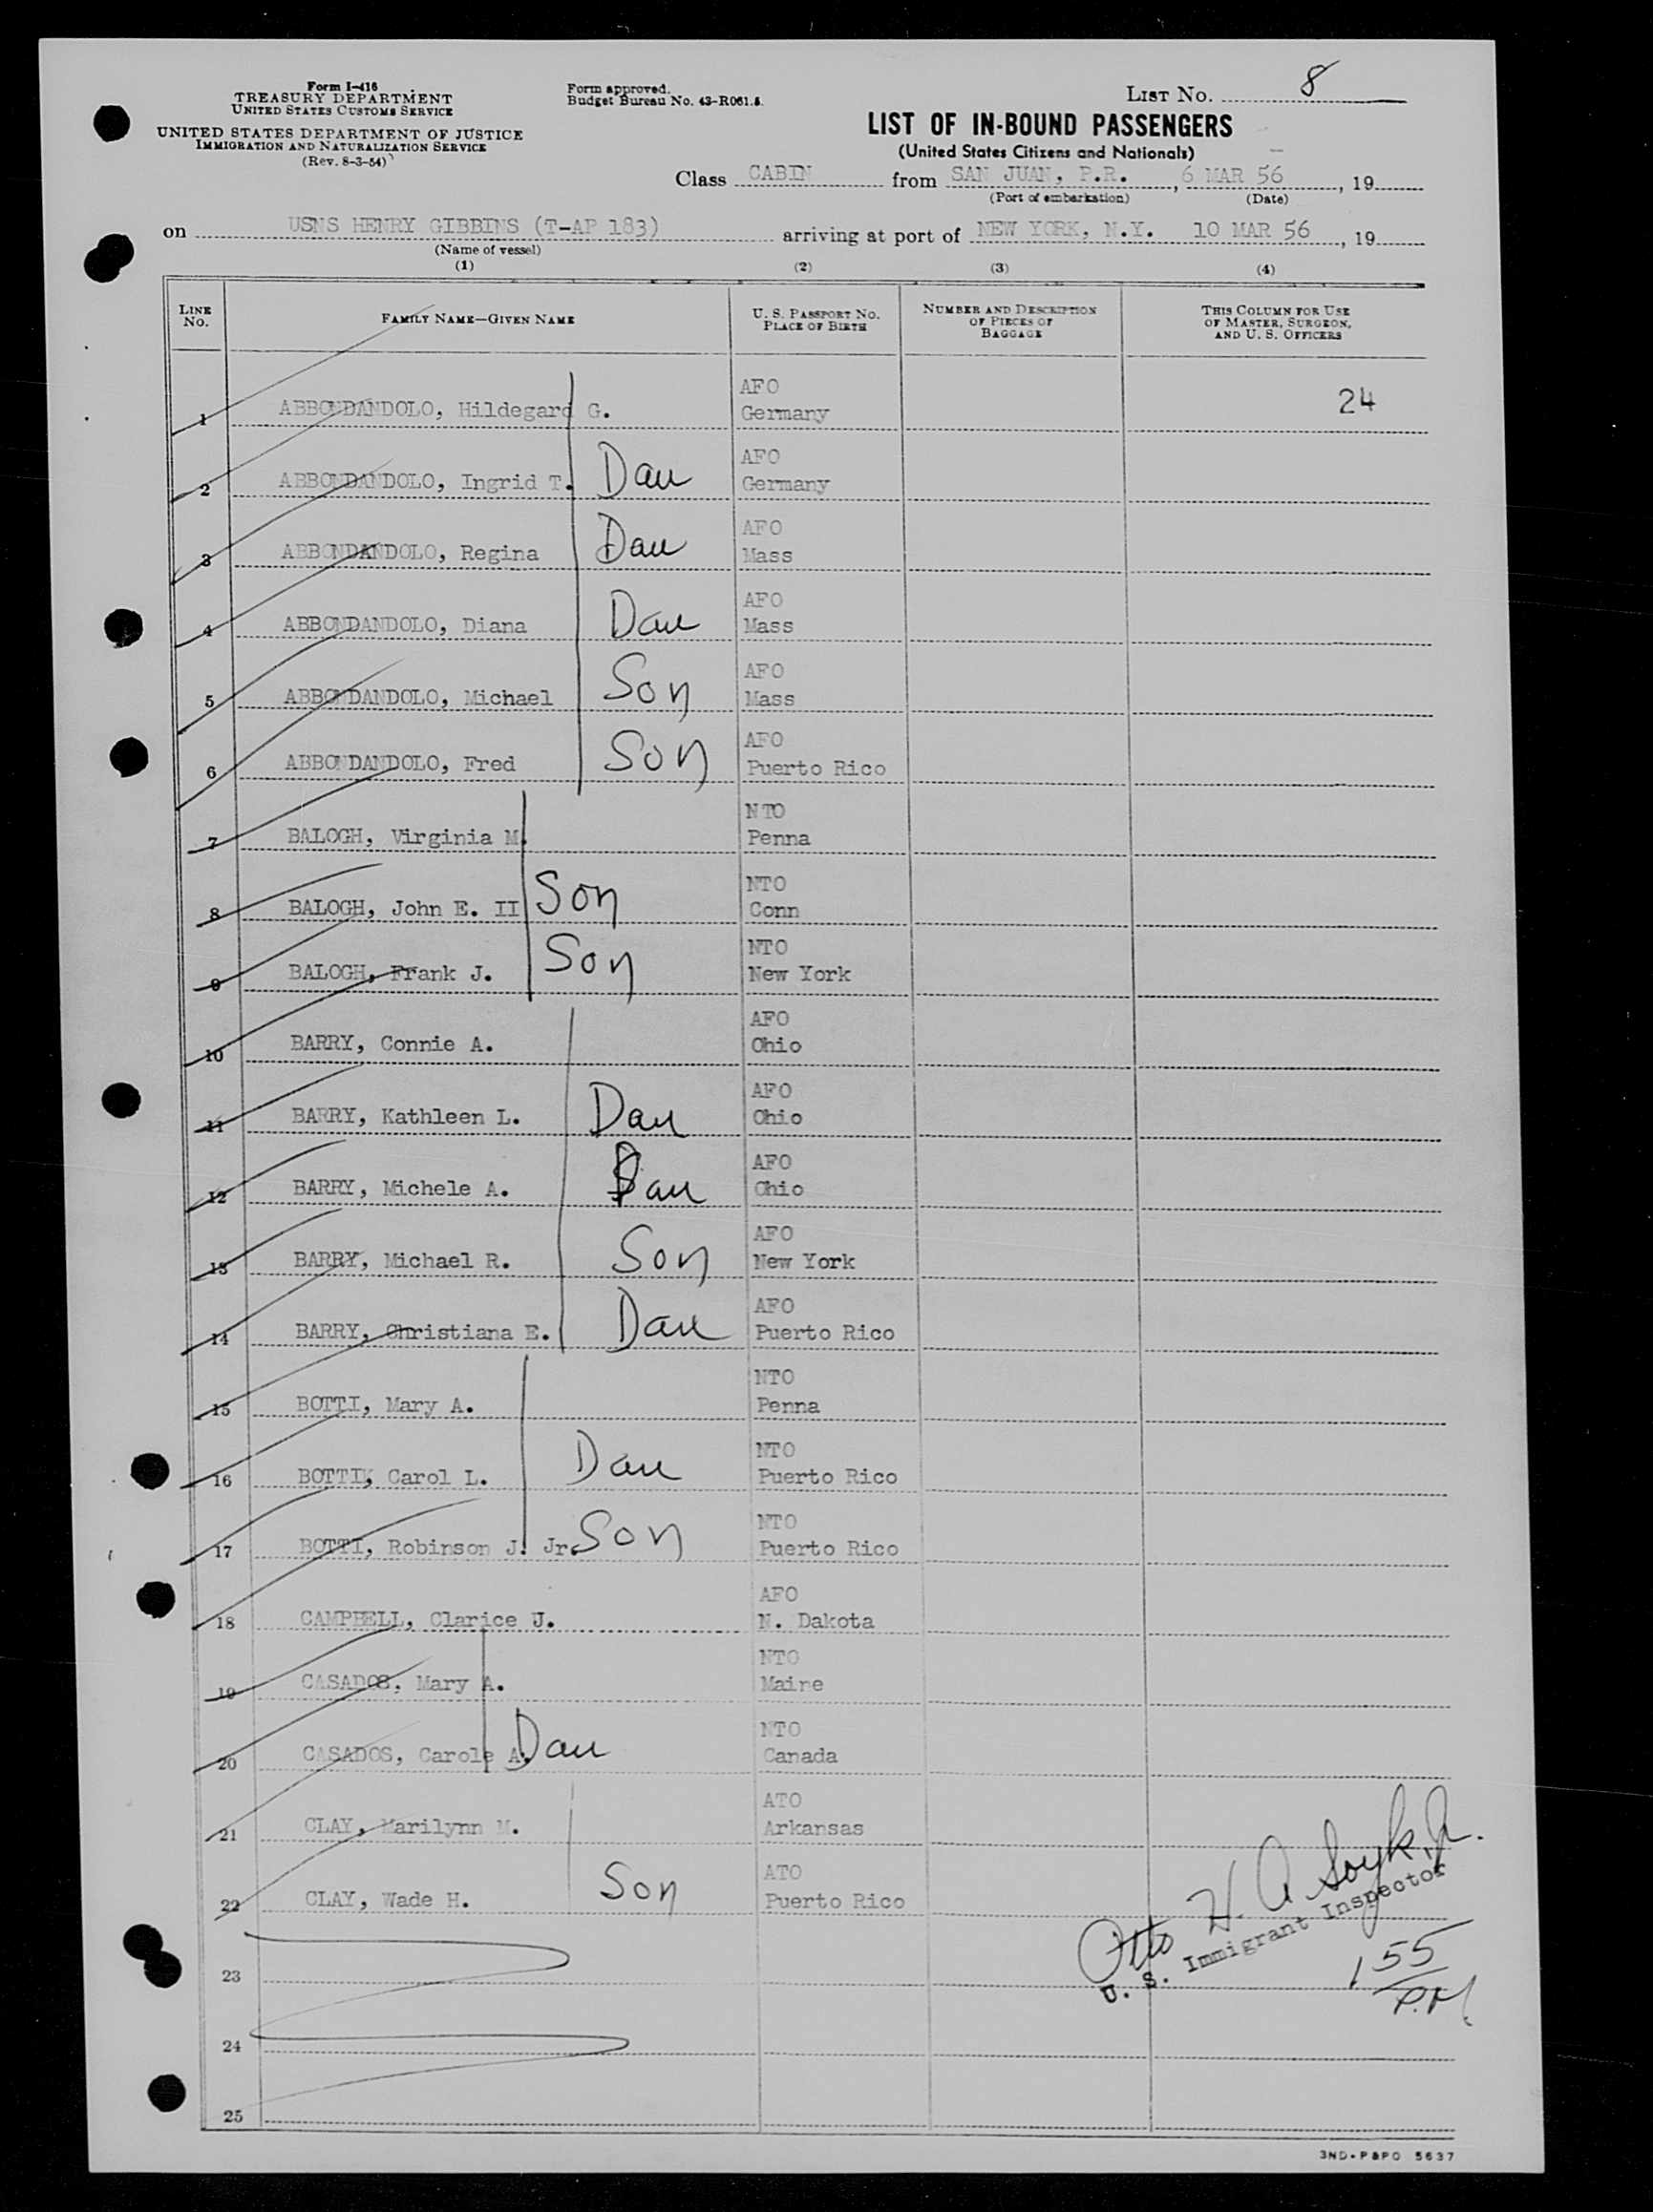 Form I-416
TREASURY DEPARTMENT
UNITED STATES CUSTOMS SERVICE
UNITED STATES DEPARTMENT OF JUSTICE
IMMIGRATION AND NATURALIZATION SERVICE
(Rev. 8-3-54)
Form approved.
Budget Bureau No. 43-R061.5.
LIST NO. 8
LIST OF IN-BOUND PASSENGERS
(United States Citizens and Nationals)
Class CABIN from SAN JUAN, P.R., 6 MAR 56, 19
(Port of embarkation) (Date)
on USNS HENRY GIBBINS (T-AP 183) arriving at port of NEW YORK, N.Y. 10 MAR 56, 19
(Name of vessel)
(1) (2) (3) (4)
LINE NO. FAMILY NAME—GIVEN NAME U. S. PASSPORT NO. PLACE OF BIRTH NUMBER AND DESCRIPTION OF PIECES OF BAGGAGE THIS COLUMN FOR USE OF MASTER, SURGEON, AND U. S. OFFICERS
AFO
1 ABBONDANDOLO, Hildegard G. Germany 24
AFO
2 ABBONDANDOLO, Ingrid T. Dau Germany
AFO
3 ABBONDANDOLO, Regina Dau Mass
AFO
4 ABBONDANDOLO, Diana Dau Mass
AFO
5 ABBONDANDOLO, Michael Son Mass
AFO
6 ABBONDANDOLO, Fred Son Puerto Rico
NTO
7 BALOGH, Virginia M. Penna
NTO
8 BALOGH, John E. II Son Conn
NTO
9 BALOGH, Frank J. Son New York
AFO
10 BARRY, Connie A. Ohio
AFO
11 BARRY, Kathleen L. Dau Ohio
AFO
12 BARRY, Michele A. Dau Ohio
AFO
13 BARRY, Michael R. Son New York
AFO
14 BARRY, Christiana E. Dau Puerto Rico
NTO
15 BOTTI, Mary A. Penna
NTO
16 BOTTI, Carol L. Dau Puerto Rico
NTO
17 BOTTI, Robinson J. Jr. Son Puerto Rico
AFO
18 CAMPBELL, Clarice J. N. Dakota
NTO
19 CASADOS, Mary A. Maine
NTO
20 CASADOS, Carole A. Dau Canada
ATO
21 CLAY, Marilynn M. Arkansas
ATO
22 CLAY, Wade H. Son Puerto Rico
Otto H. A. Soyk, Jr.
U. S. Immigrant Inspector
1 55 P.M.
23
24
25
3ND-P&PO 5637